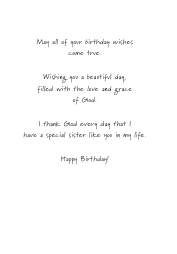 May all of your birthday wishes
come true.
Wishing you a beautiful day,
filled with the love and grace
of God.
I thank God every day that I
have a special sister like you in my life.
Happy Birthday!